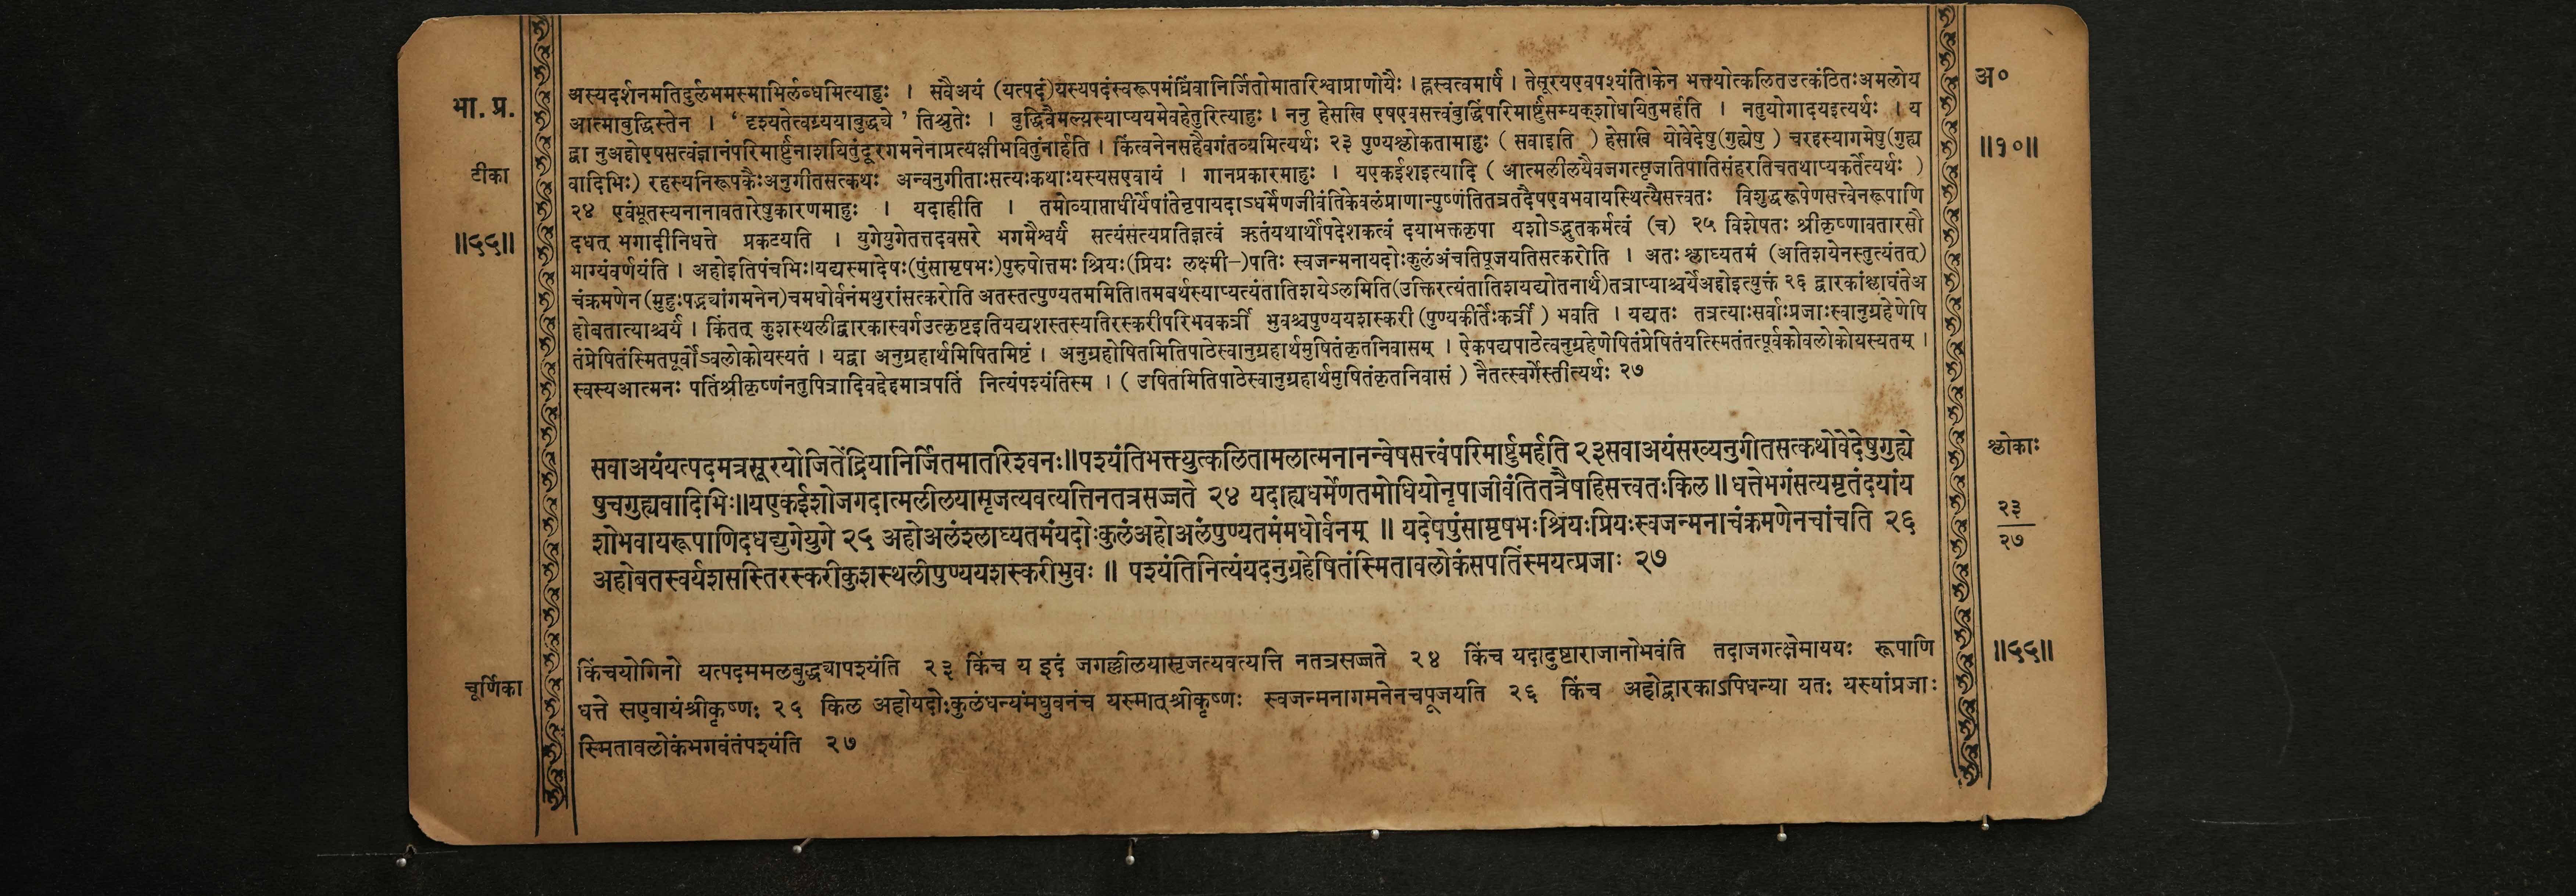 भा. प्र.
टीका
॥५५॥
अस्यदर्शनमतिदुर्लभमस्माभिर्लब्धमित्याहुः । सवैअयं (यत्पदं)यस्यपदंस्वरूपमंघ्रिंवानिर्जितोमातरिश्वाप्राणोयैः । ह्नस्वत्वमार्षं । तेसूरयएवपश्यंति।केन भक्तयोत्कलितउत्कंठितःअमलोय
आत्माबुद्धिस्तेन । ‘ दृश्यतेत्वग्र्ययाबुद्धये ’ तिश्रुतेः । बुद्धिवैमल्यस्याप्ययमेवहेतुरित्याहुः । ननु हेसखि एषएवसत्त्वंबुद्धिंपरिमार्ष्टुंसम्यक्शोधयितुमर्हति । नतुयोगादयइत्यर्थः । य
द्वा नुअहोएषसत्वंज्ञानंपरिमार्ष्टुंनाशयितुंदूरगमनेनाप्रत्यक्षीभवितुंनार्हति । किंत्वनेनसहैवगंतव्यमित्यर्थः २३ पुण्यश्लोकतामाहुः ( सवाइति ) हेसखि योवेदेषु(गुह्येषु ) चरहस्यागमेषु(गुह्य
वादिभिः) रहस्यनिरूपकैःअनुगीतसत्कथः अन्वनुगीताःसत्यःकथाःयस्यसएवायं । गानप्रकारमाहुः । यएकईशइत्यादि ( आत्मलीलयैवजगत्सृजतिपातिसंहरतिचतथाप्यकर्तेत्यर्थः )
२४ एवंभूतस्यनानावतारेषुकारणमाहुः । यदाहीति । तमोव्याप्ताधीर्येषांतेनृपायदाऽधर्मेणजीवंतिकेवलंप्राणान्पुष्णंतितत्रतदैषएवभवायस्थित्यैसत्त्वतः विशुद्धरूपेणसत्त्वेनरूपाणि
दधत् भगादीनिधत्ते प्रकटयति । युगेयुगेतत्तदवसरे भगमैश्वर्यं सत्यंसत्यप्रतिज्ञत्वं ऋतंयथार्थोपदेशकत्वं दयाभक्तकृपा यशोऽद्भुतकर्मत्वं (च) २५ विशेषतः श्रीकृष्णावतारसौ
भाग्यंवर्णयंति । अहोइतिपंचभिः।यद्यस्मादेषः(पुंसामृषभः)पुरुषोत्तमः श्रियः(प्रियः लक्ष्मी–)पतिः स्वजन्मनायदोःकुलंअंचतिपूजयतिसत्करोति । अतः श्लाघ्यतमं (अतिशयेनस्तुत्यंतत्)
चंक्रमणेन (मुहुःपद्भ्यांगमनेन)चमधोर्वनंमथुरांसत्करोति अतस्तत्पुण्यतममिति।तमबर्थस्याप्यत्यंतातिशयेऽलमिति(उक्तिरत्यंतातिशयद्योतनार्थं)तत्राप्याश्चर्येअहोइत्युक्तं २६ द्वारकांश्लाघंतेअ
होबतात्याश्चर्यं । किंतत् कुशस्थलीद्वारकास्वर्गउत्कृष्टइतियद्यशस्तस्यतिरस्करीपरिभवकर्त्री भुवश्चपुण्ययशस्करी (पुण्यकीर्तेःकर्त्री ) भवति । यद्यतः तत्रत्याःसर्वाःप्रजाःस्वानुग्रहेणेषि
तंप्रेषितंस्मितपूर्वोऽवलोकोयस्यतं । यद्वा अनुग्रहार्थमिषितमिष्टं । अनुग्रहोषितमितिपाठेस्वानुग्रहार्थमुषितंकृतनिवासम् । ऐकपद्यपाठेत्वनुग्रहेणेषितंप्रेषितंयत्स्मितंतत्पूर्वकोवलोकोयस्यतम् ।
स्वस्यआत्मनः पतिंश्रीकृष्णंनतुपित्रादिवद्देहमात्रपतिं नित्यंपश्यंतिस्म । ( उषितमितिपाठेस्वानुग्रहार्थमुषितंकृतनिवासं ) नैतत्स्वर्गेस्तीत्यर्थः २७
सवाअयंयत्पदमत्रसूरयोजितेंद्रियानिर्जितमातरिश्वनः॥पश्यंतिभक्त्युत्कलितामलात्मनानन्वेषसत्त्वंपरिमार्ष्टुमर्हति २३सवाअयंसख्यनुगीतसत्कथोवेदेषुगुह्ये
षुचगुह्यवादिभिः॥यएकईशोजगदात्मलीलयासृजत्यवत्यत्तिनतत्रसज्जते २४ यदाह्यधर्मेणतमोधियोनृपाजीवंतितत्रैषहिसत्त्वतःकिल॥ धत्तेभगंसत्यमृतंदयांय
शोभवायरूपाणिदधद्युगेयुगे २५ अहोअलंश्लाघ्यतमंयदोःकुलंअहोअलंपुण्यतमंमधोर्वनम् ॥ यदेषपुंसामृषभःश्रियःप्रियःस्वजन्मनाचंक्रमणेनचांचति २६
अहोबतस्वर्यशसस्तिरस्करीकुशस्थलीपुण्ययशस्करीभुवः ॥ पश्यंतिनित्यंयदनुग्रहेषितंस्मितावलोकंसपतिंस्मयत्प्रजाः २७
चूर्णिका
किंचयोगिनो यत्पदममलबुद्ध्यापश्यंति २३ किंच य इदं जगल्लीलयासृजत्यवत्यत्ति नतत्रसज्जते २४ किंच यदादुष्टाराजानोभवंति तदाजगत्क्षेमाययः रूपाणि
धत्ते सएवायंश्रीकृष्णः २५ किल अहोयदोःकुलंधन्यंमधुवनंच यस्मात्श्रीकृष्णः स्वजन्मनागमनेनचपूजयति २६ किंच अहोद्वारकाऽपिधन्या यतः यस्यांप्रजाः
स्मितावलोकंभगवंतंपश्यंति २७
अ०
॥१०॥
श्लोकाः
२३
२७
॥५५॥